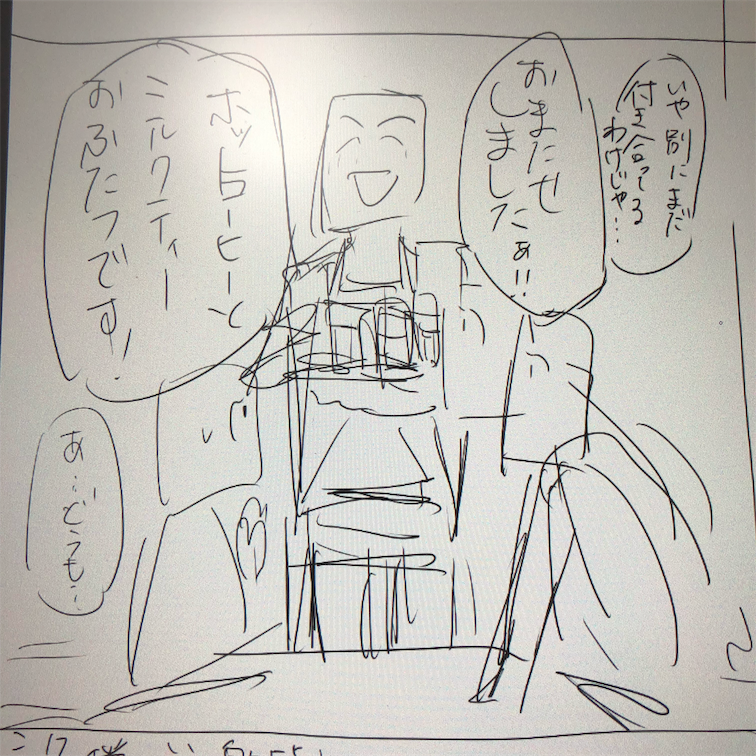 いや別にまだ
付き合ってる
わけじゃ…
おまたせ
しましたぁ!!
ホットコーヒーと
ミルクティー
おふたつです!
あ…どうも…